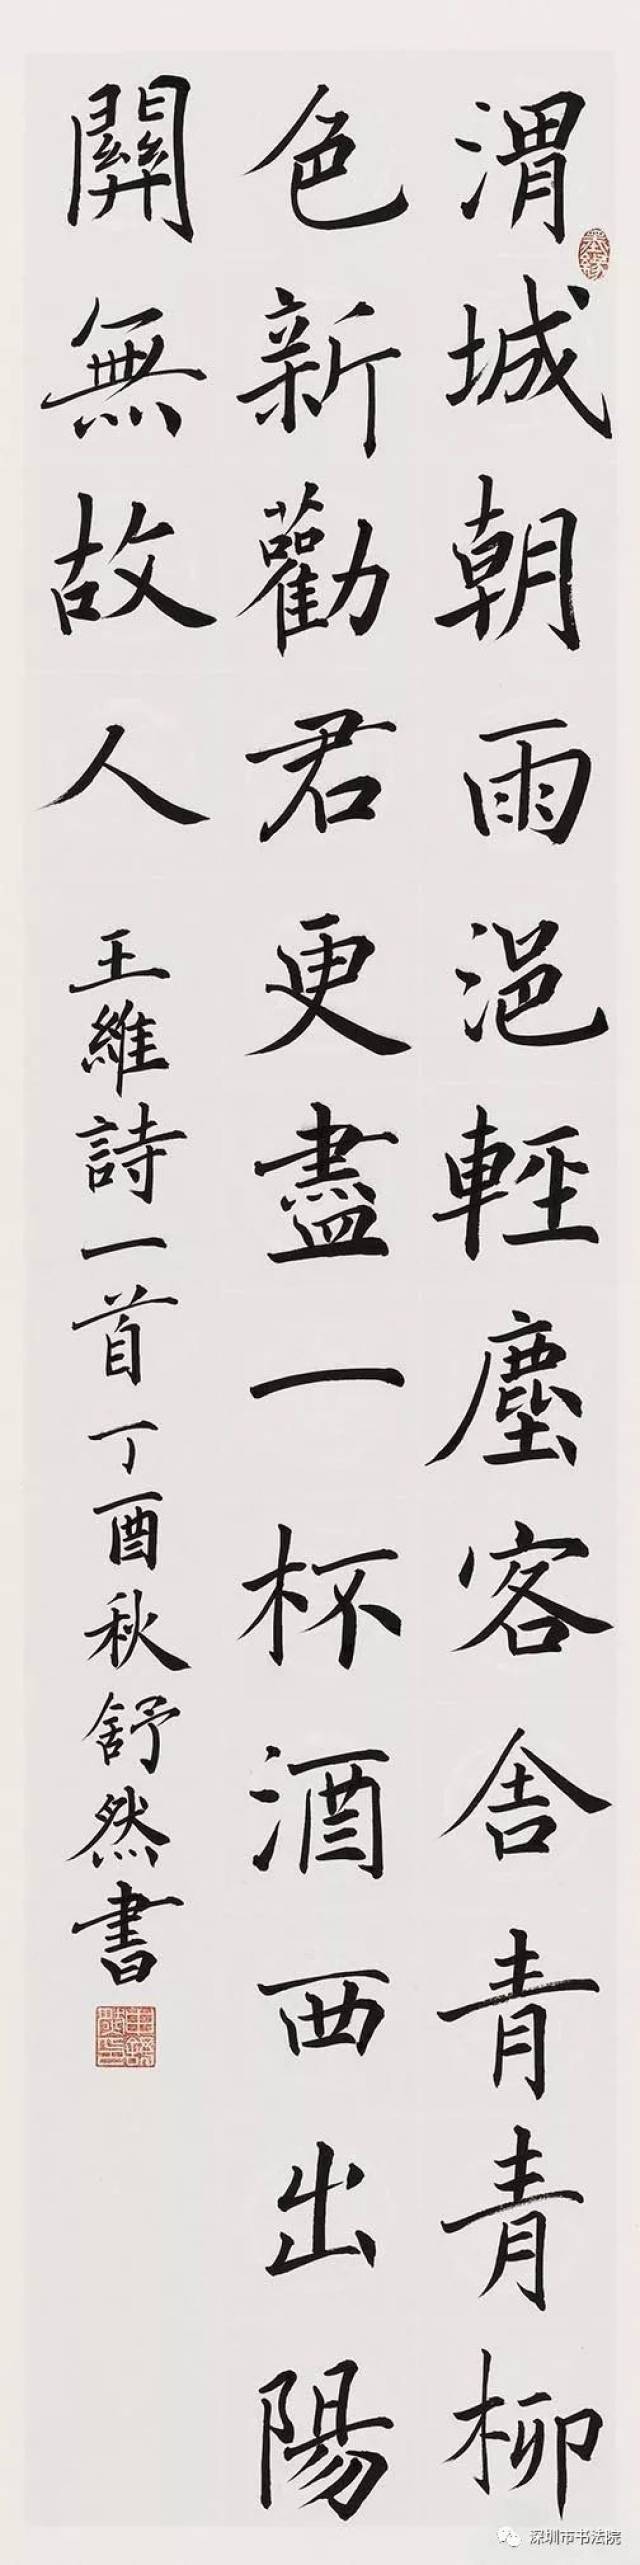 渭城朝雨浥輕塵客舍青青柳
色新勸君更盡一杯酒西出陽
關無故人
王維詩一首丁酉秋舒然書
墨緣
深圳市书法院